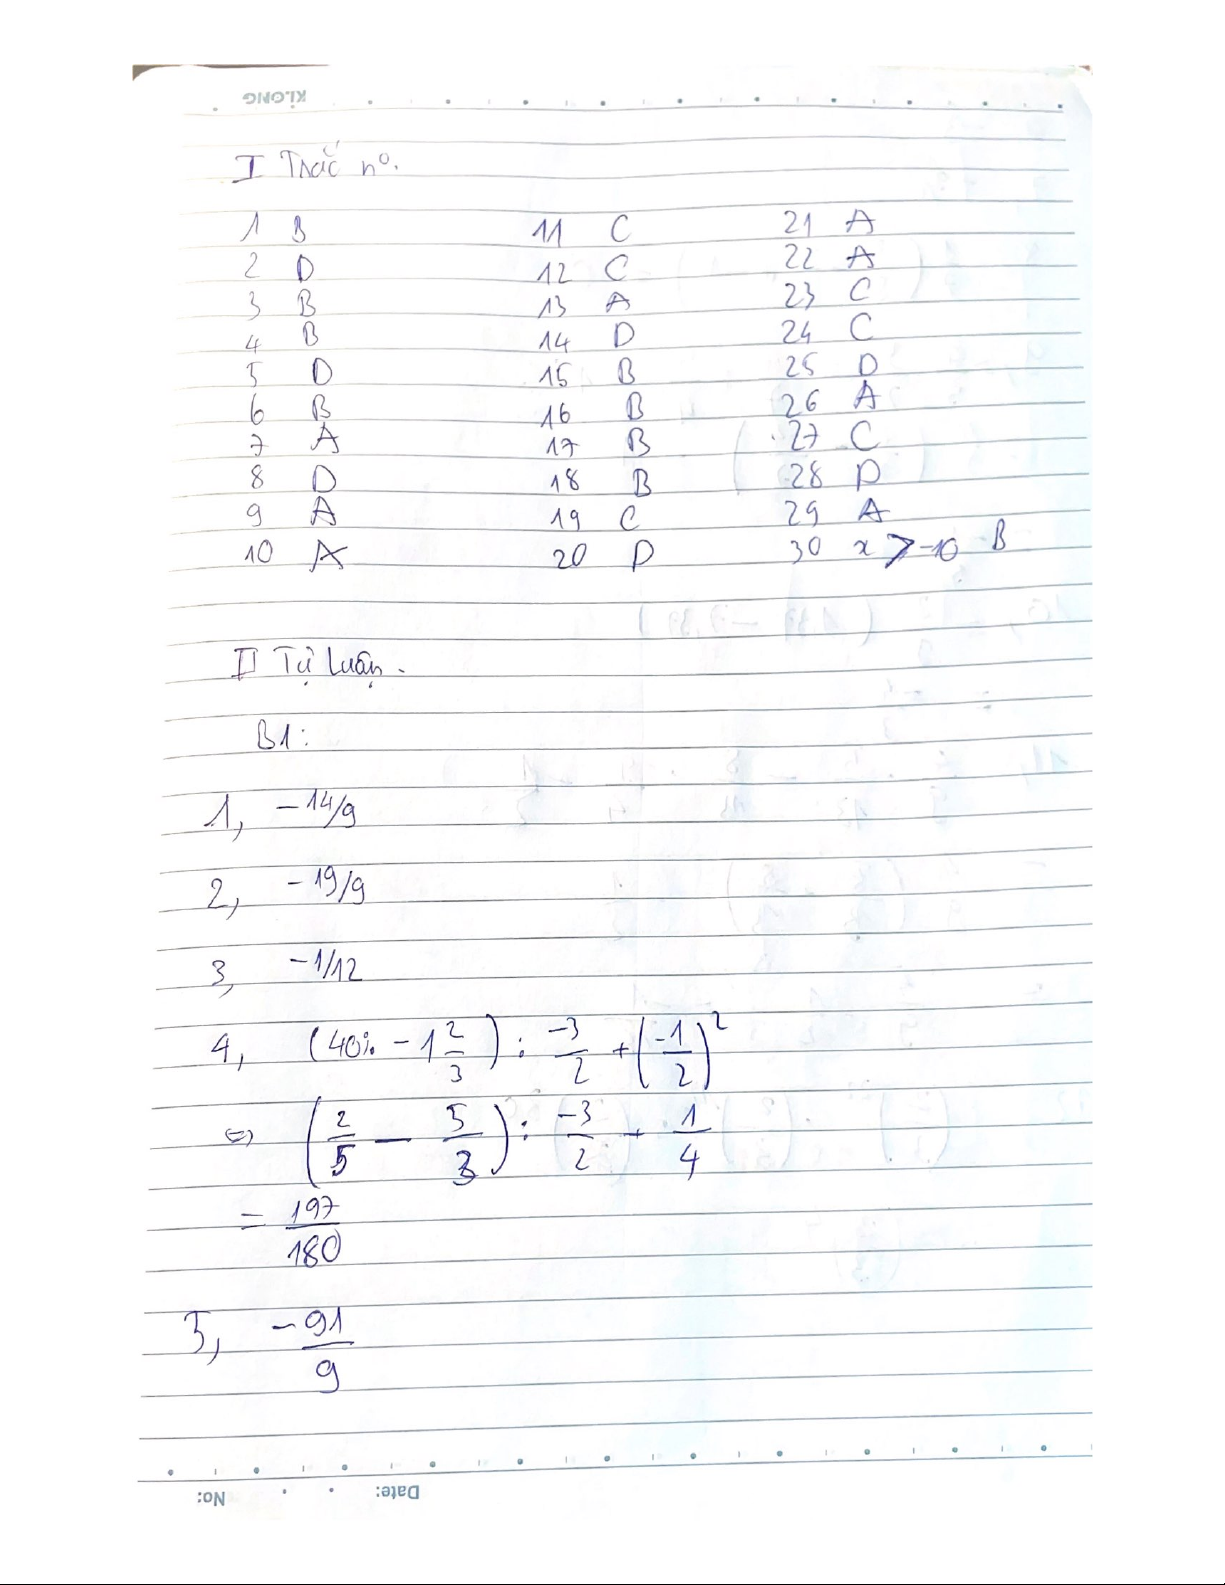 KLONG
I Trắc nº.
1 B 11 C 21 A
2 D 12 C 22 A
3 B 13 A 23 C
4 B 14 D 24 C
5 D 15 B 25 D
6 B 16 B 26 A
7 A 17 B 27 C
8 D 18 B 28 D
9 A 19 C 29 A
10 A 20 D 30 x > -10 B
II Tự luận.
B1:
1, -14/9
2, -19/9
3, -1/12
4, (40% - 1 2/3) : -3/2 + (-1/2)²
⇔ (2/5 - 5/3) : -3/2 + 1/4
= 197/180
5, -91/9
No: Date: